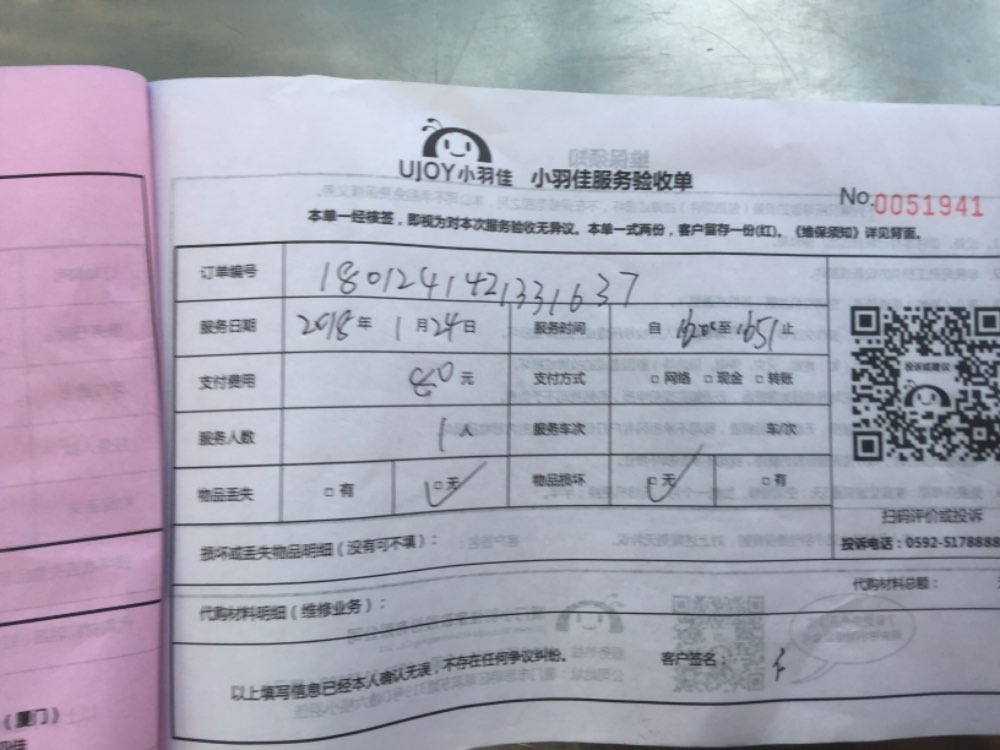 UJOY小羽佳 小羽佳服务验收单
No.0051941
本单一经核签，即视为对本次服务验收无异议。本单一式两份，客户留存一份(红)。《维保须知》详见背面。
订单编号 1801241421331637
服务日期 2018年 1月24日 服务时间 自 至1651止
支付费用 元 支付方式 □网络 □现金 □转账
服务人数 1人 服务车次 车/次
物品丢失 □有 □无 物品损坏 □无 □有
投诉或建议
扫码评价或投诉
损坏或丢失物品明细（没有可不填）：
投诉电话：0592-5178888
代购材料总额：
代购材料明细（维修业务）：
以上填写信息已经本人确认无误，不存在任何争议纠纷。 客户签名：
（厦门）